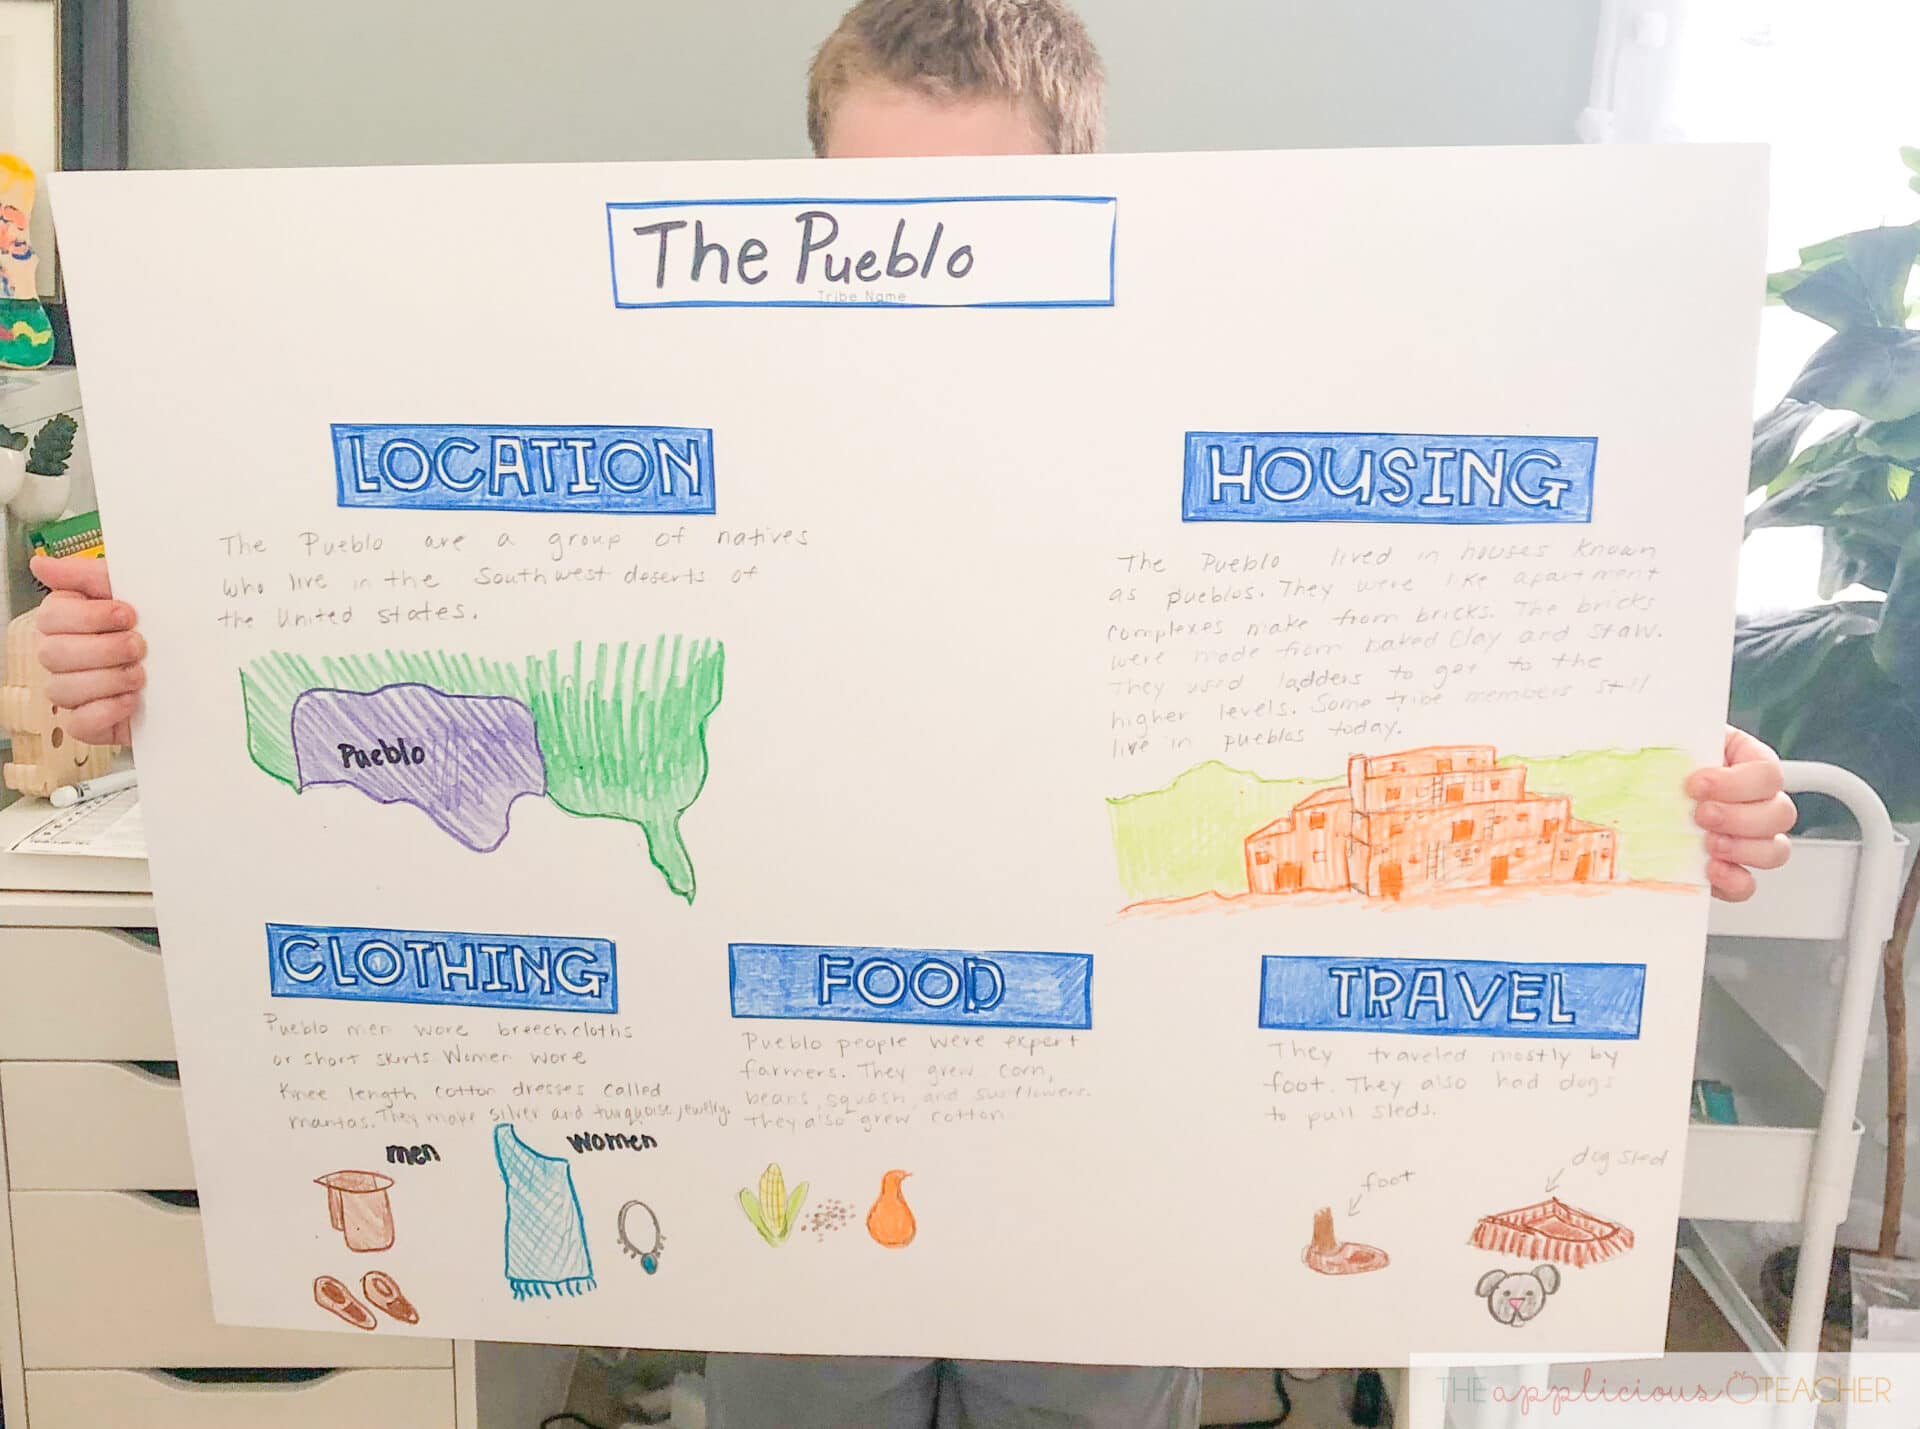 The Pueblo
Tribe Name
LOCATION
The Pueblo are a group of natives
who live in the Southwest deserts of
the United States.
Pueblo
HOUSING
The Pueblo lived in houses known
as pueblos. They were like apartment
complexes make from bricks. The bricks
were made from baked clay and staw.
They used ladders to get to the
higher levels. Some tribe members still
live in pueblos today.
CLOTHING
Pueblo men wore breechcloths
or short skirts Women wore
Knee length cotton dresses called
mantas. They make silver and turquoise jewelry.
men
women
FOOD
Pueblo people were expert
farmers. They grew corn,
beans, squash, and sunflowers.
They also grew cotton.
TRAVEL
They traveled mostly by
foot. They also had dogs
to pull sleds.
foot
dog sled
THE applicious TEACHER